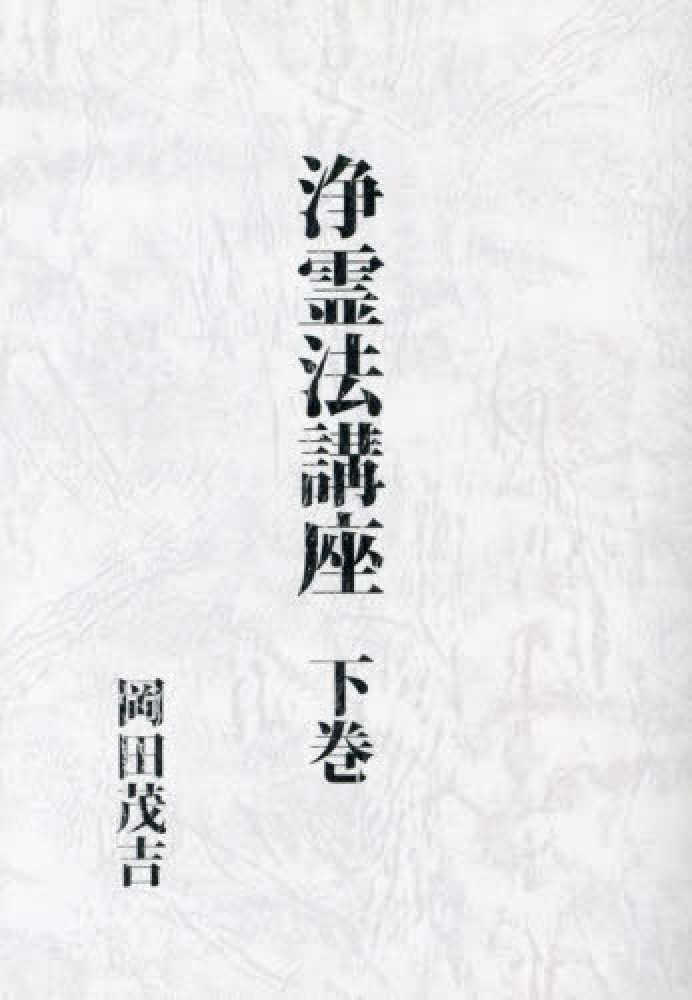 浄霊法講座 下巻
岡田茂吉